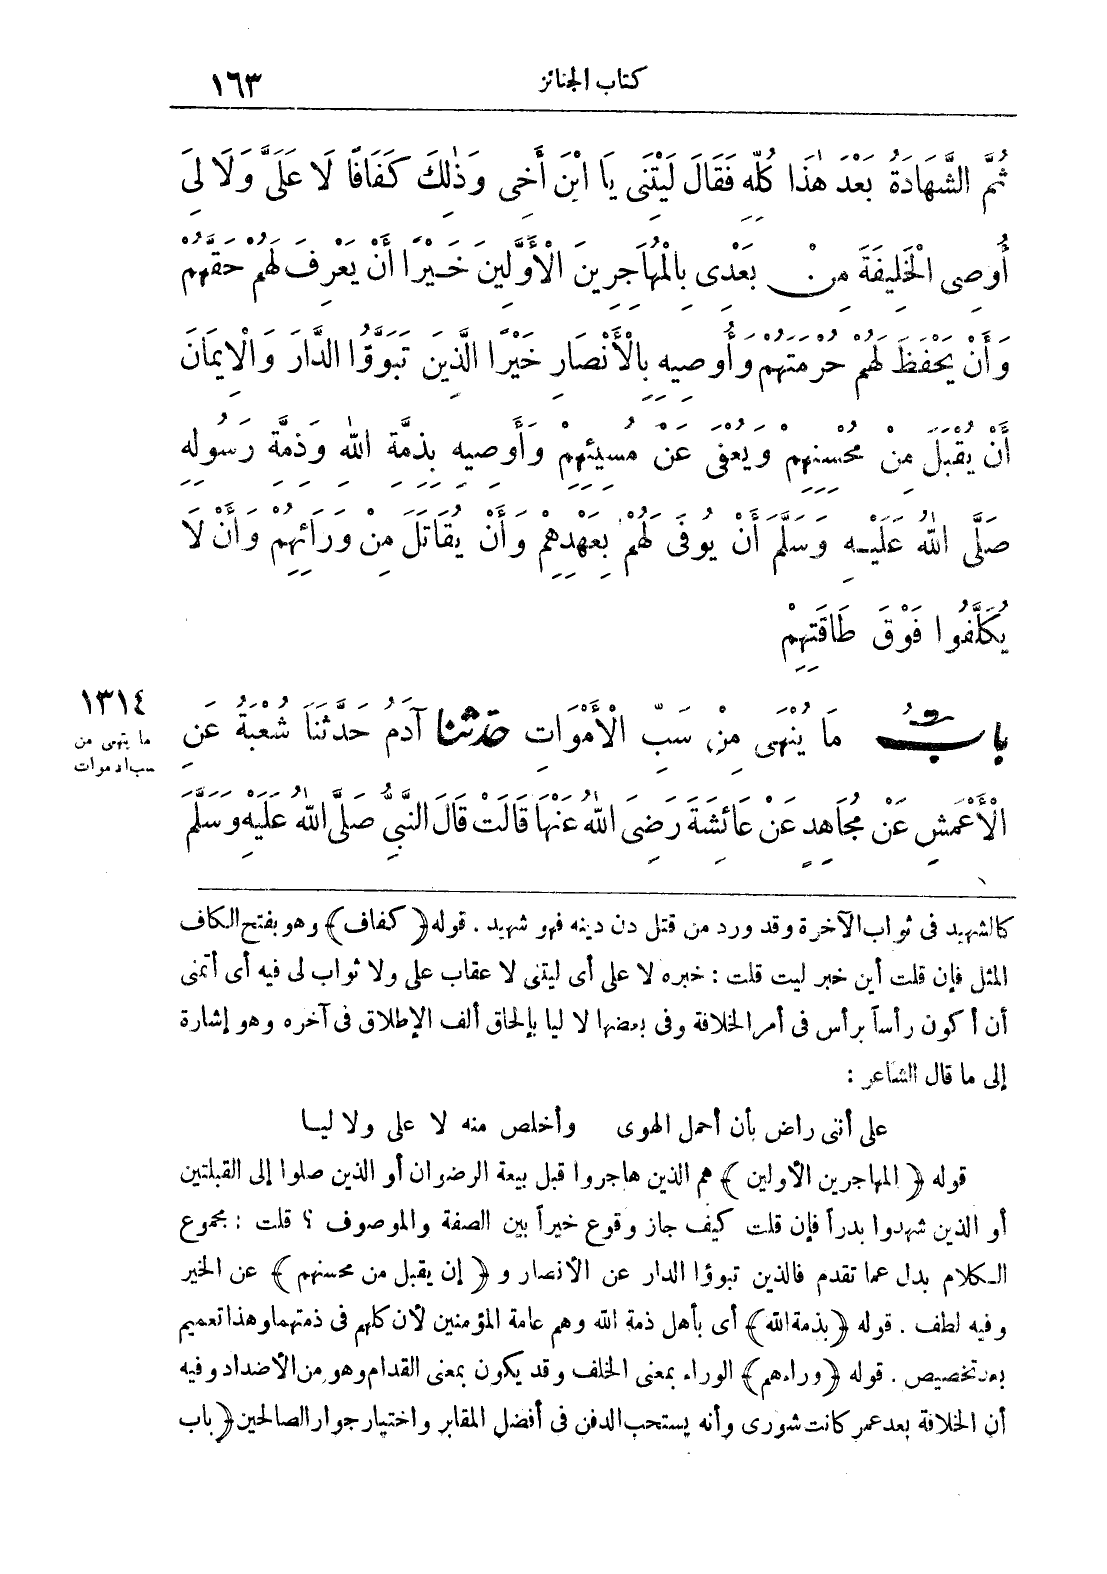 كتاب الجنائز ١٦٣
ثُمَّ الشَّهَادَةُ بَعْدَ هٰذَا كُلِّهِ فَقَالَ لَيْتَنِى يَا ابْنَ أَخِى وَذٰلِكَ كَفَافًا لَا عَلَىَّ وَلَا لِىَ
أُوصِى الْخَلِيفَةَ مِنْ بَعْدِى بِالْمُهَاجِرِينَ الْأَوَّلِينَ خَيْرًا أَنْ يَعْرِفَ لَهُمْ حَقَّهُمْ
وَأَنْ يَحْفَظَ لَهُمْ حُرْمَتَهُمْ وَأُوصِيهِ بِالْأَنْصَارِ خَيْرًا الَّذِينَ تَبَوَّؤُا الدَّارَ وَالْإِيمَانَ
أَنْ يُقْبَلَ مِنْ مُحْسِنِهِمْ وَيُعْفَى عَنْ مُسِيئِهِمْ وَأُوصِيهِ بِذِمَّةِ اللهِ وَذِمَّةِ رَسُولِهِ
صَلَّى اللهُ عَلَيْهِ وَسَلَّمَ أَنْ يُوفَى لَهُمْ بِعَهْدِهِمْ وَأَنْ يُقَاتَلَ مِنْ وَرَائِهِمْ وَأَنْ لَا
يُكَلَّفُوا فَوْقَ طَاقَتِهِمْ
١٣١٤
ما ينهى من
سب الاموات
بَابُ مَا يُنْهَى مِنْ سَبِّ الْأَمْوَاتِ حَدَّثَنَا آدَمُ حَدَّثَنَا شُعْبَةُ عَنِ
الْأَعْمَشِ عَنْ مُجَاهِدٍ عَنْ عَائِشَةَ رَضِىَ اللهُ عَنْهَا قَالَتْ قَالَ النَّبِىُّ صَلَّى اللهُ عَلَيْهِ وَسَلَّمَ
كالشهيد فى ثواب الآخرة وقد ورد من قتل دن دينه فهو شهيد . قوله ﴿كفاف﴾ وهو بفتح الكاف
المثل فإن قلت أين خبر ليت قلت : خبره لا على أى ليتنى لا عقاب على ولا ثواب لى فيه أى أتمنى
أن أكون رأساً برأس فى أمر الخلافة وفى بعضها لا ليا بإلحاق ألف الإطلاق فى آخره وهو إشارة
إلى ما قال الشاعر :
على أننى راض بأن أحمل الهوى وأخلص منه لا على ولا ليا
قوله ﴿المهاجرين الأولين﴾ هم الذين هاجروا قبل بيعة الرضوان أو الذين صلوا إلى القبلتين
أو الذين شهدوا بدراً فإن قلت كيف جاز وقوع خيراً بين الصفة والموصوف ؟ قلت : مجموع
الكلام بدل عما تقدم فالذين تبوؤا الدار عن الأنصار و ﴿إن يقبل من محسنهم﴾ عن الخير
وفيه لطف . قوله ﴿بذمة الله﴾ أى بأهل ذمة الله وهم عامة المؤمنين لأن كلهم فى ذمتهما وهذا تعميم
بعد تخصيص . قوله ﴿وراءهم﴾ الوراء بمعنى الخلف وقد يكون بمعنى القدام وهو من الأضداد وفيه
أن الخلافة بعد عمر كانت شورى وأنه يستحب الدفن فى أفضل المقابر واختيار جوار الصالحين ﴿باب